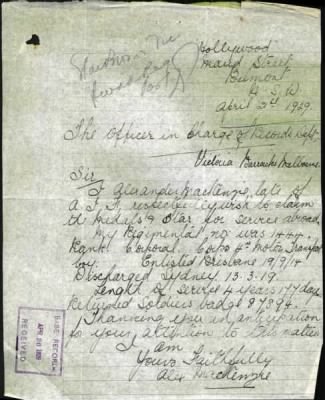 Hollywood
Street
N. S. W.
April 2nd 1939.
The Officer in Charge of Records Dept
Victoria Barracks Melbourne.
Sir
I Alexander Mackenzie, late of
A. I. F. respectfully wish to claim
Medals & Star for service abroad,
My Regimental no was 1444.
Rank Corporal. 4th Motor Transport
Coy. Enlisted Brisbane 19/9/14
Discharged Sydney 13.3.19.
Lenght of service 4 years 177 days
Returned Soldiers badge 87894.
Thanking you in anticipation
to your attention to this matter
I am
Yours Faithfully
Alex Mackenzie
BASE RECORDS
RECEIVED